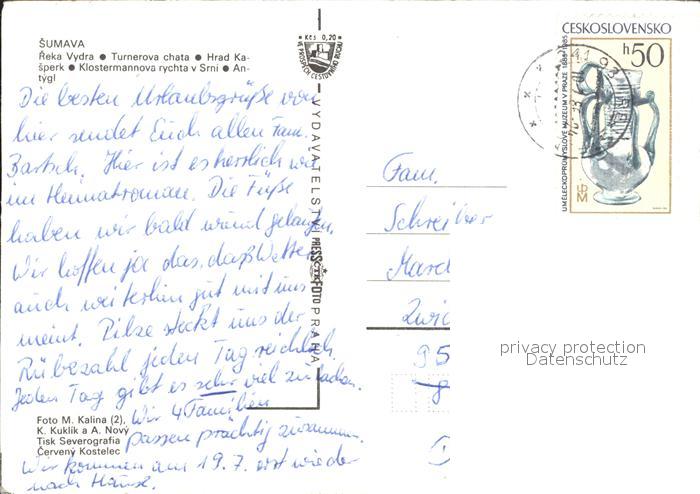 ŠUMAVA
Řeka Vydra ● Turnerova chata ● Hrad Ka-
šperk ● Klostermannova rychta v Srní ● An-
týgl
Die besten Urlaubsgrüße von
hier sendet Euch allen Fam.
Bartsch. Hier ist es herrlich wie
im Heimatroman. Die Füße
haben wir bald wund gelaufen.
Wir hoffen ja das, daß Wetter
auch weiterhin gut mit uns
meint. Pilze steckt uns der
Rübezahl jeden Tag reichlich.
Jeden Tag gibt es sehr viel zu lachen.
Wir 4 Familien
passen prächtig zusammen.
Wir kommen am 19.7. erst wieder
nach Hause.
Foto M. Kalina (2),
K. Kuklík a A. Nový
Tisk Severografia
Červený Kostelec
Kčs 0,20
VE PROSPĚCH CESTOVNÍHO RUCHU
VYDAVATELSTVÍ PRESSFOTO PRAHA
ČTK
Fam.
Schreiber
95
ČESKOSLOVENSKO
h50
UMĚLECKOPRŮMYSLOVÉ MUZEUM V PRAZE 1885-1985
UPM
privacy protection
Datenschutz